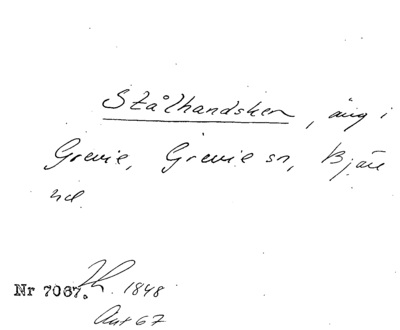 Stålhandsken, äng i
Grevie, Grevie sn, Bjäre
hd.
Nr 7067. 1848
Akt 67